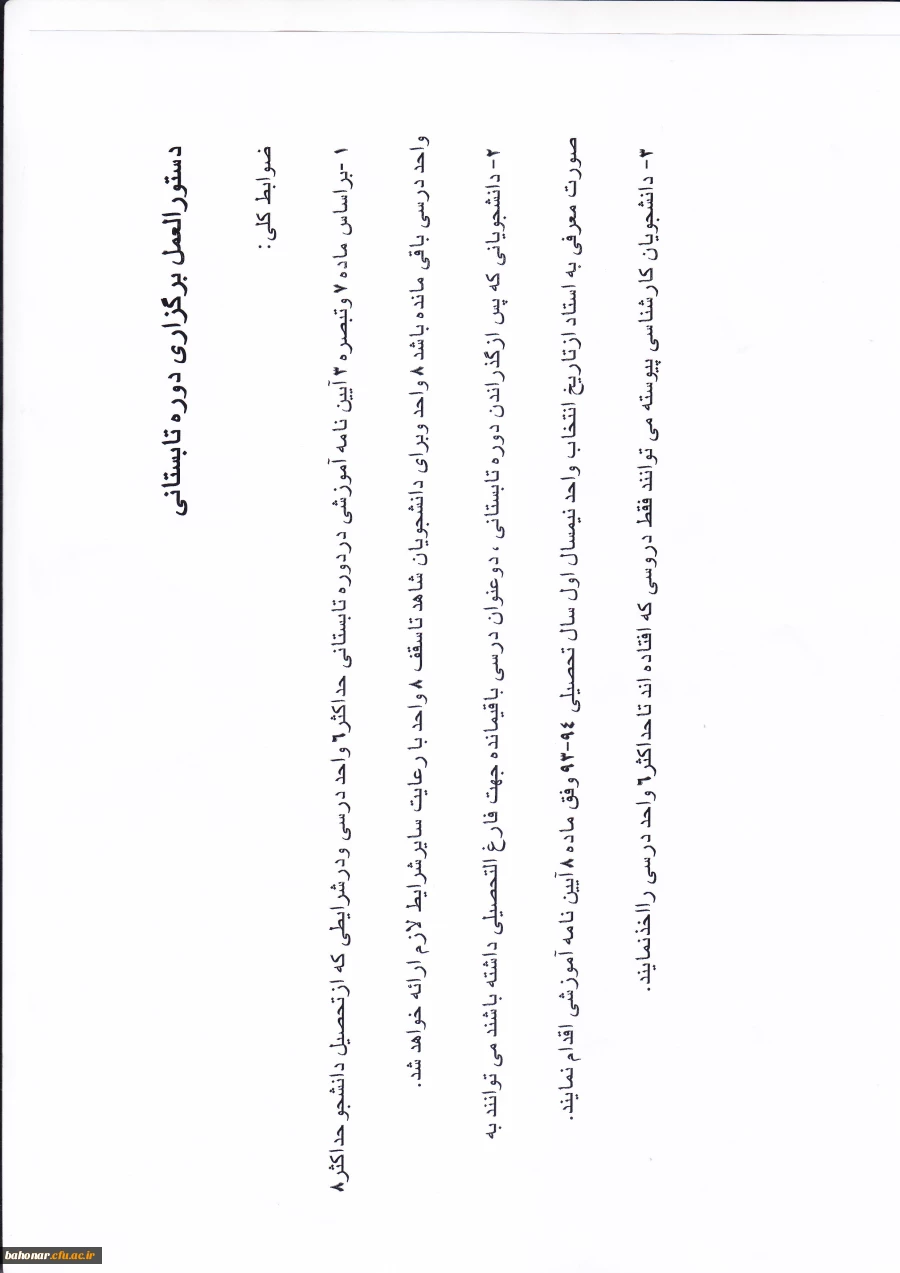 دستورالعمل برگزاری دوره تابستانی
ضوابط کلی :
۱ -براساس ماده ۷ وتبصره ۳ آیین نامه آموزشی دردوره تابستانی حداکثر٦ واحد درسی ودرشرایطی که ازتحصیل دانشجو حداکثر۸
واحد درسی باقی مانده باشد ۸ واحد وبرای دانشجویان شاهد تاسقف ۸ واحد با رعایت سایرشرایط لازم ارائه خواهد شد.
۲- دانشجویانی که پس ازگذراندن دوره تابستانی ، دوعنوان درسی باقیمانده جهت فارغ التحصیلی داشته باشند می توانند به
صورت معرفی به استاد ازتاریخ انتخاب واحد نیمسال اول سال تحصیلی ۹٤-۹۳ وفق ماده ۸ آیین نامه آموزشی اقدام نمایند.
۳- دانشجویان کارشناسی پیوسته می توانند فقط دروسی که افتاده اند تاحداکثر٦ واحد درسی رااخذنمایند.
bahonar.cfu.ac.ir